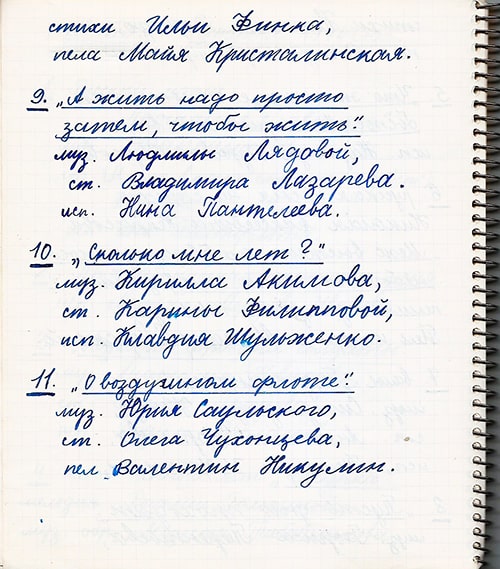 стихи Ильи Финка,
пела Майя Кристалинская.
9. „А жить надо просто
затем, чтобы жить".
муз. Людмилы Лядовой,
ст. Владимира Лазарева.
исп. Нина Пантелеева.
10. „Сколько мне лет?"
муз. Кирилла Акимова,
ст. Карины Филипповой,
исп. Клавдия Шульженко.
11. „О воздушном флоте".
муз. Юрия Саульского,
ст. Олега Чухонцева,
пел Валентин Никулин.